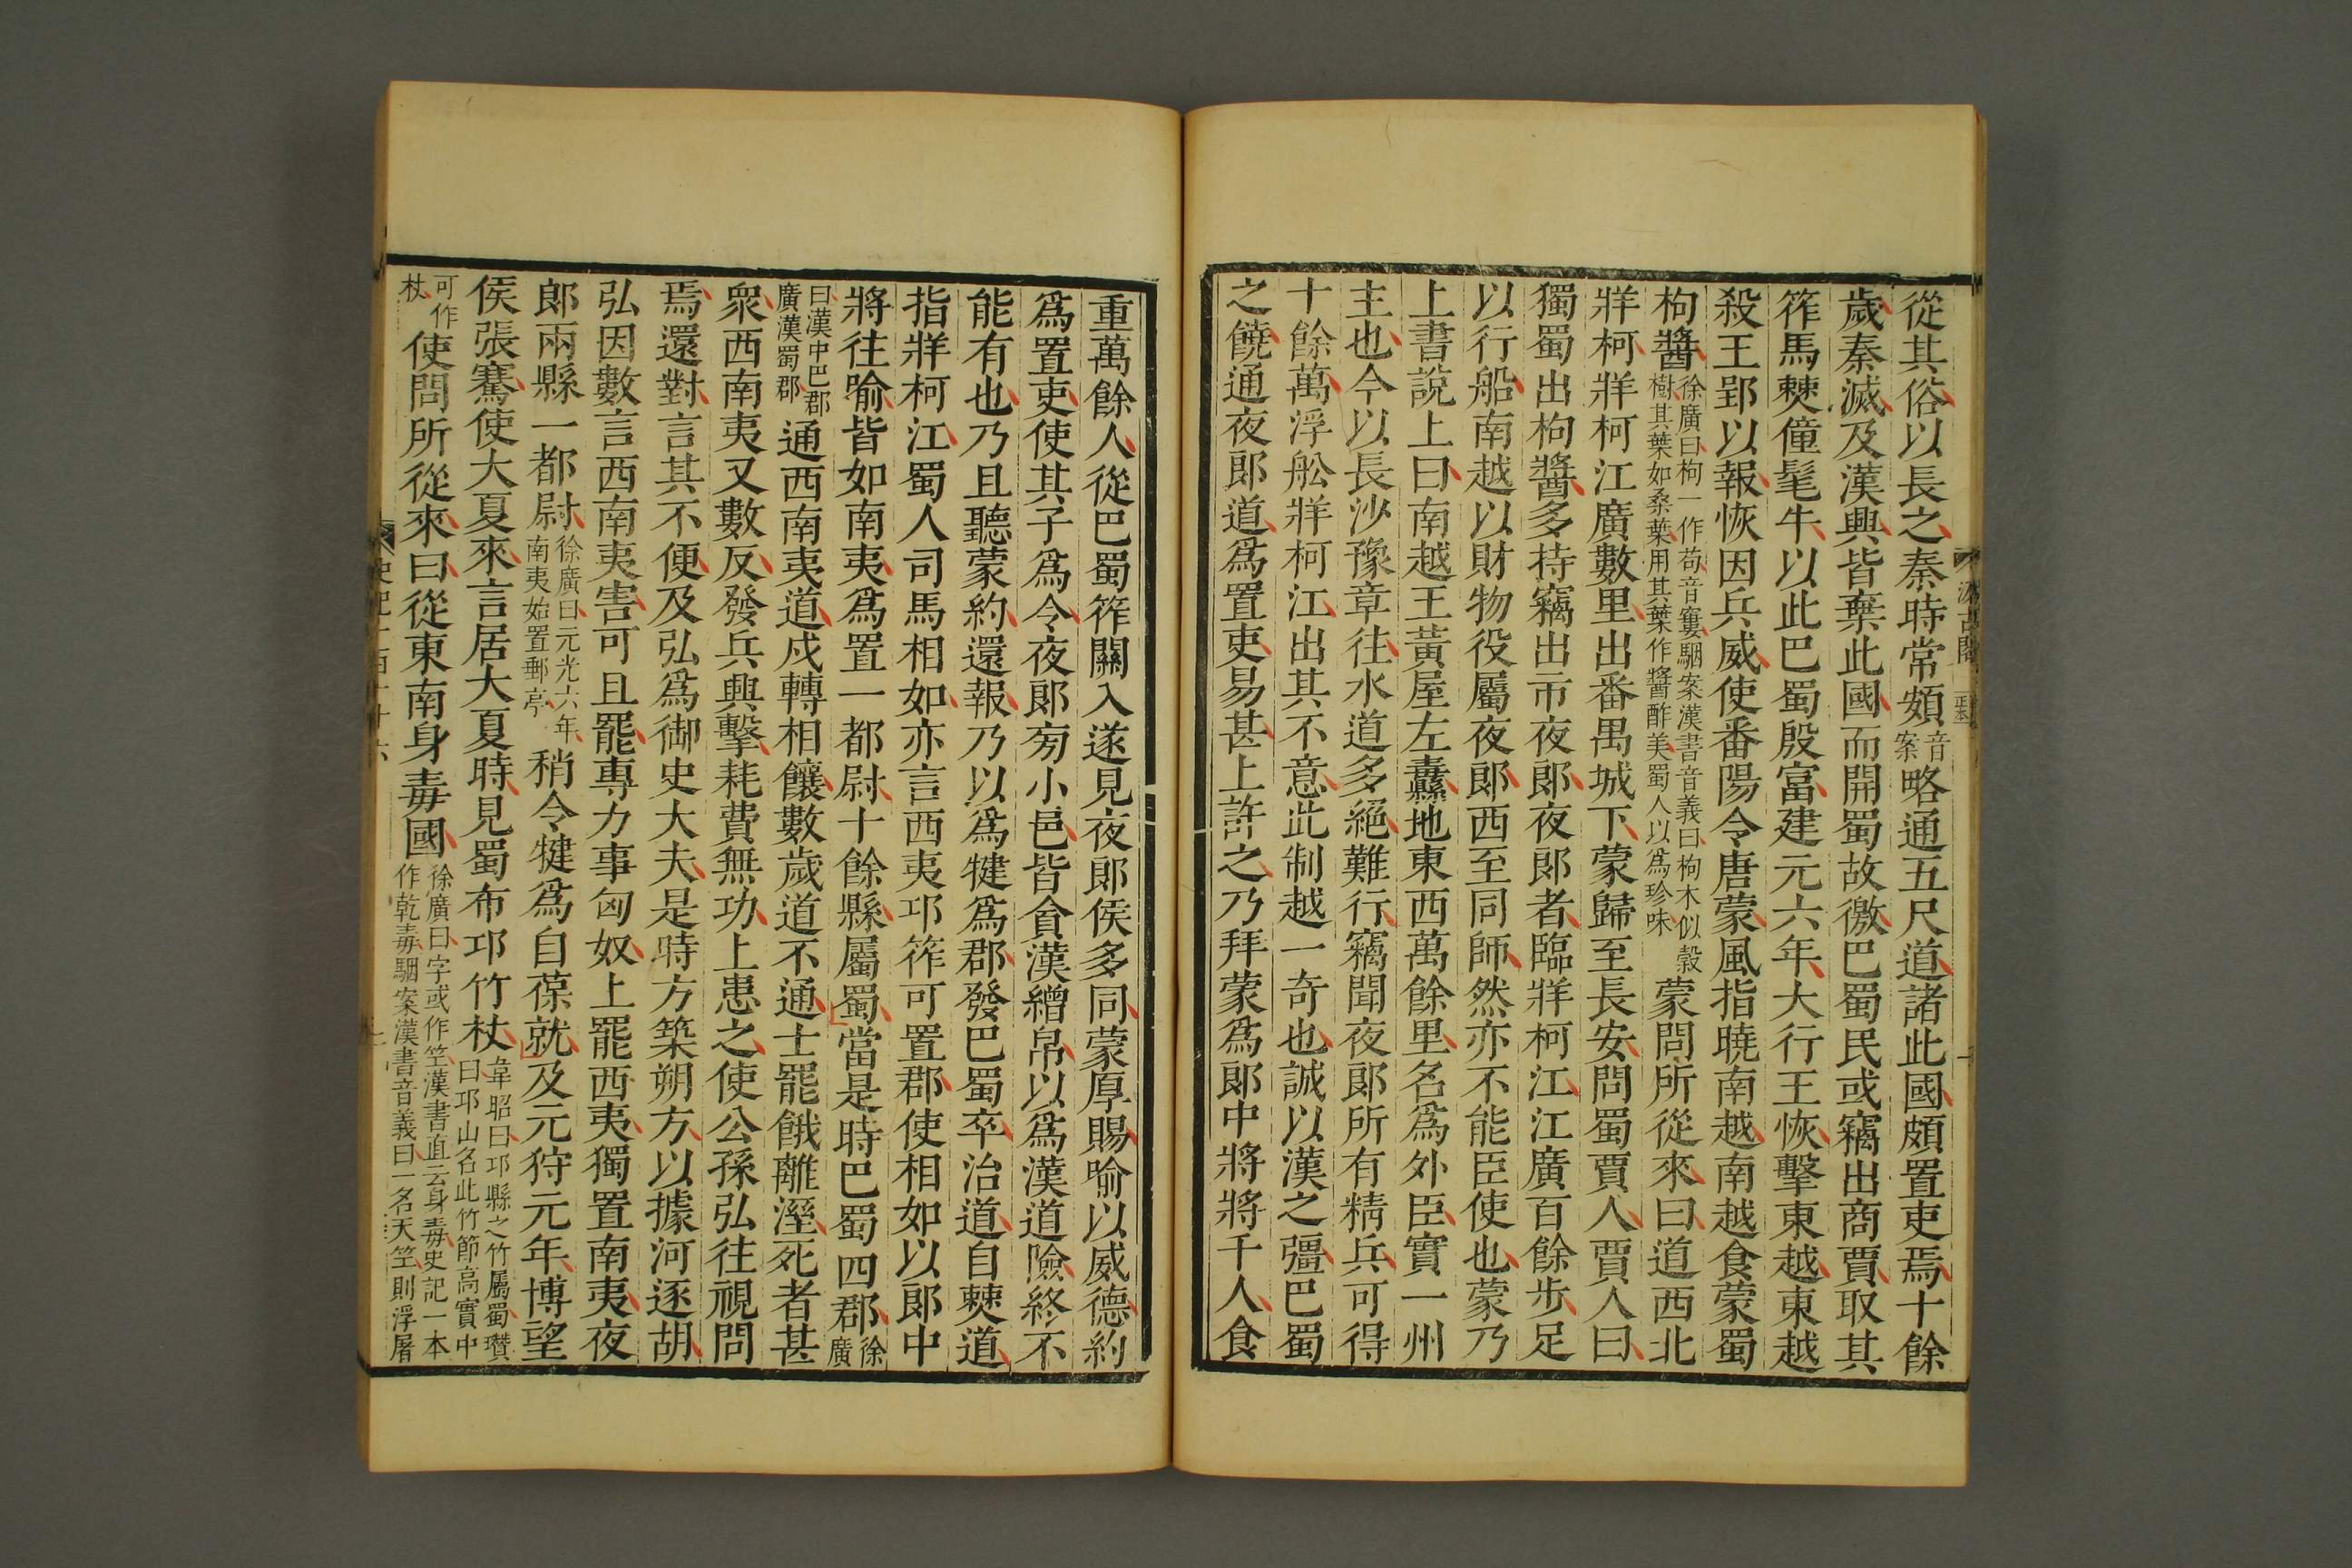 從其俗以長之秦時常頞音案略通五尺道諸此國頗置吏焉十餘
歲秦滅及漢興皆棄此國而開蜀故徼巴蜀民或竊出商賈取其
筰馬僰僮髦牛以此巴蜀殷富建元六年大行王恢擊東越東越
殺王郢以報恢因兵威使番陽令唐蒙風指曉南越南越食蒙蜀
枸醬徐廣曰枸一作蒟音窶駰案漢書音義曰枸木似穀樹其葉如桑葉用其葉作醬酢美蜀人以爲珍味蒙問所從來曰道西北
牂柯牂柯江廣數里出番禺城下蒙歸至長安問蜀賈人賈人曰
獨蜀出枸醬多持竊出市夜郎夜郎者臨牂柯江江廣百餘步足
以行船南越以財物役屬夜郎西至同師然亦不能臣使也蒙乃
上書說上曰南越王黃屋左纛地東西萬餘里名爲外臣實一州
主也今以長沙豫章往水道多絕難行竊聞夜郎所有精兵可得
十餘萬浮舩牂柯江出其不意此制越一奇也誠以漢之彊巴蜀
之饒通夜郎道爲置吏易甚上許之乃拜蒙爲郎中將將千人食
重萬餘人從巴蜀筰關入遂見夜郎侯多同蒙厚賜喻以威德約
爲置吏使其子爲令夜郎旁小邑皆貪漢繒帛以爲漢道險終不
能有也乃且聽蒙約還報乃以爲犍爲郡發巴蜀卒治道自僰道
指牂柯江蜀人司馬相如亦言西夷邛筰可置郡使相如以郎中
將往喻皆如南夷爲置一都尉十餘縣屬蜀當是時巴蜀四郡徐廣
曰漢中巴郡廣漢蜀郡通西南夷道戍轉相饟數歲道不通士罷餓離溼死者甚
衆西南夷又數反發兵興擊耗費無功上患之使公孫弘往視問
焉還對言其不便及弘爲御史大夫是時方築朔方以據河逐胡
弘因數言西南夷害可且罷專力事匈奴上罷西夷獨置南夷夜
郎兩縣一都尉徐廣曰元光六年南夷始置郵亭稍令犍爲自葆就及元狩元年博望
侯張騫使大夏來言居大夏時見蜀布邛竹杖韋昭曰邛縣之竹屬蜀瓚曰邛山名此竹節高實中
可作杖使問所從來曰從東南身毒國徐廣曰字或作竺漢書直云身毒史記一本作乾毒駰案漢書音義曰一名天竺則浮屠